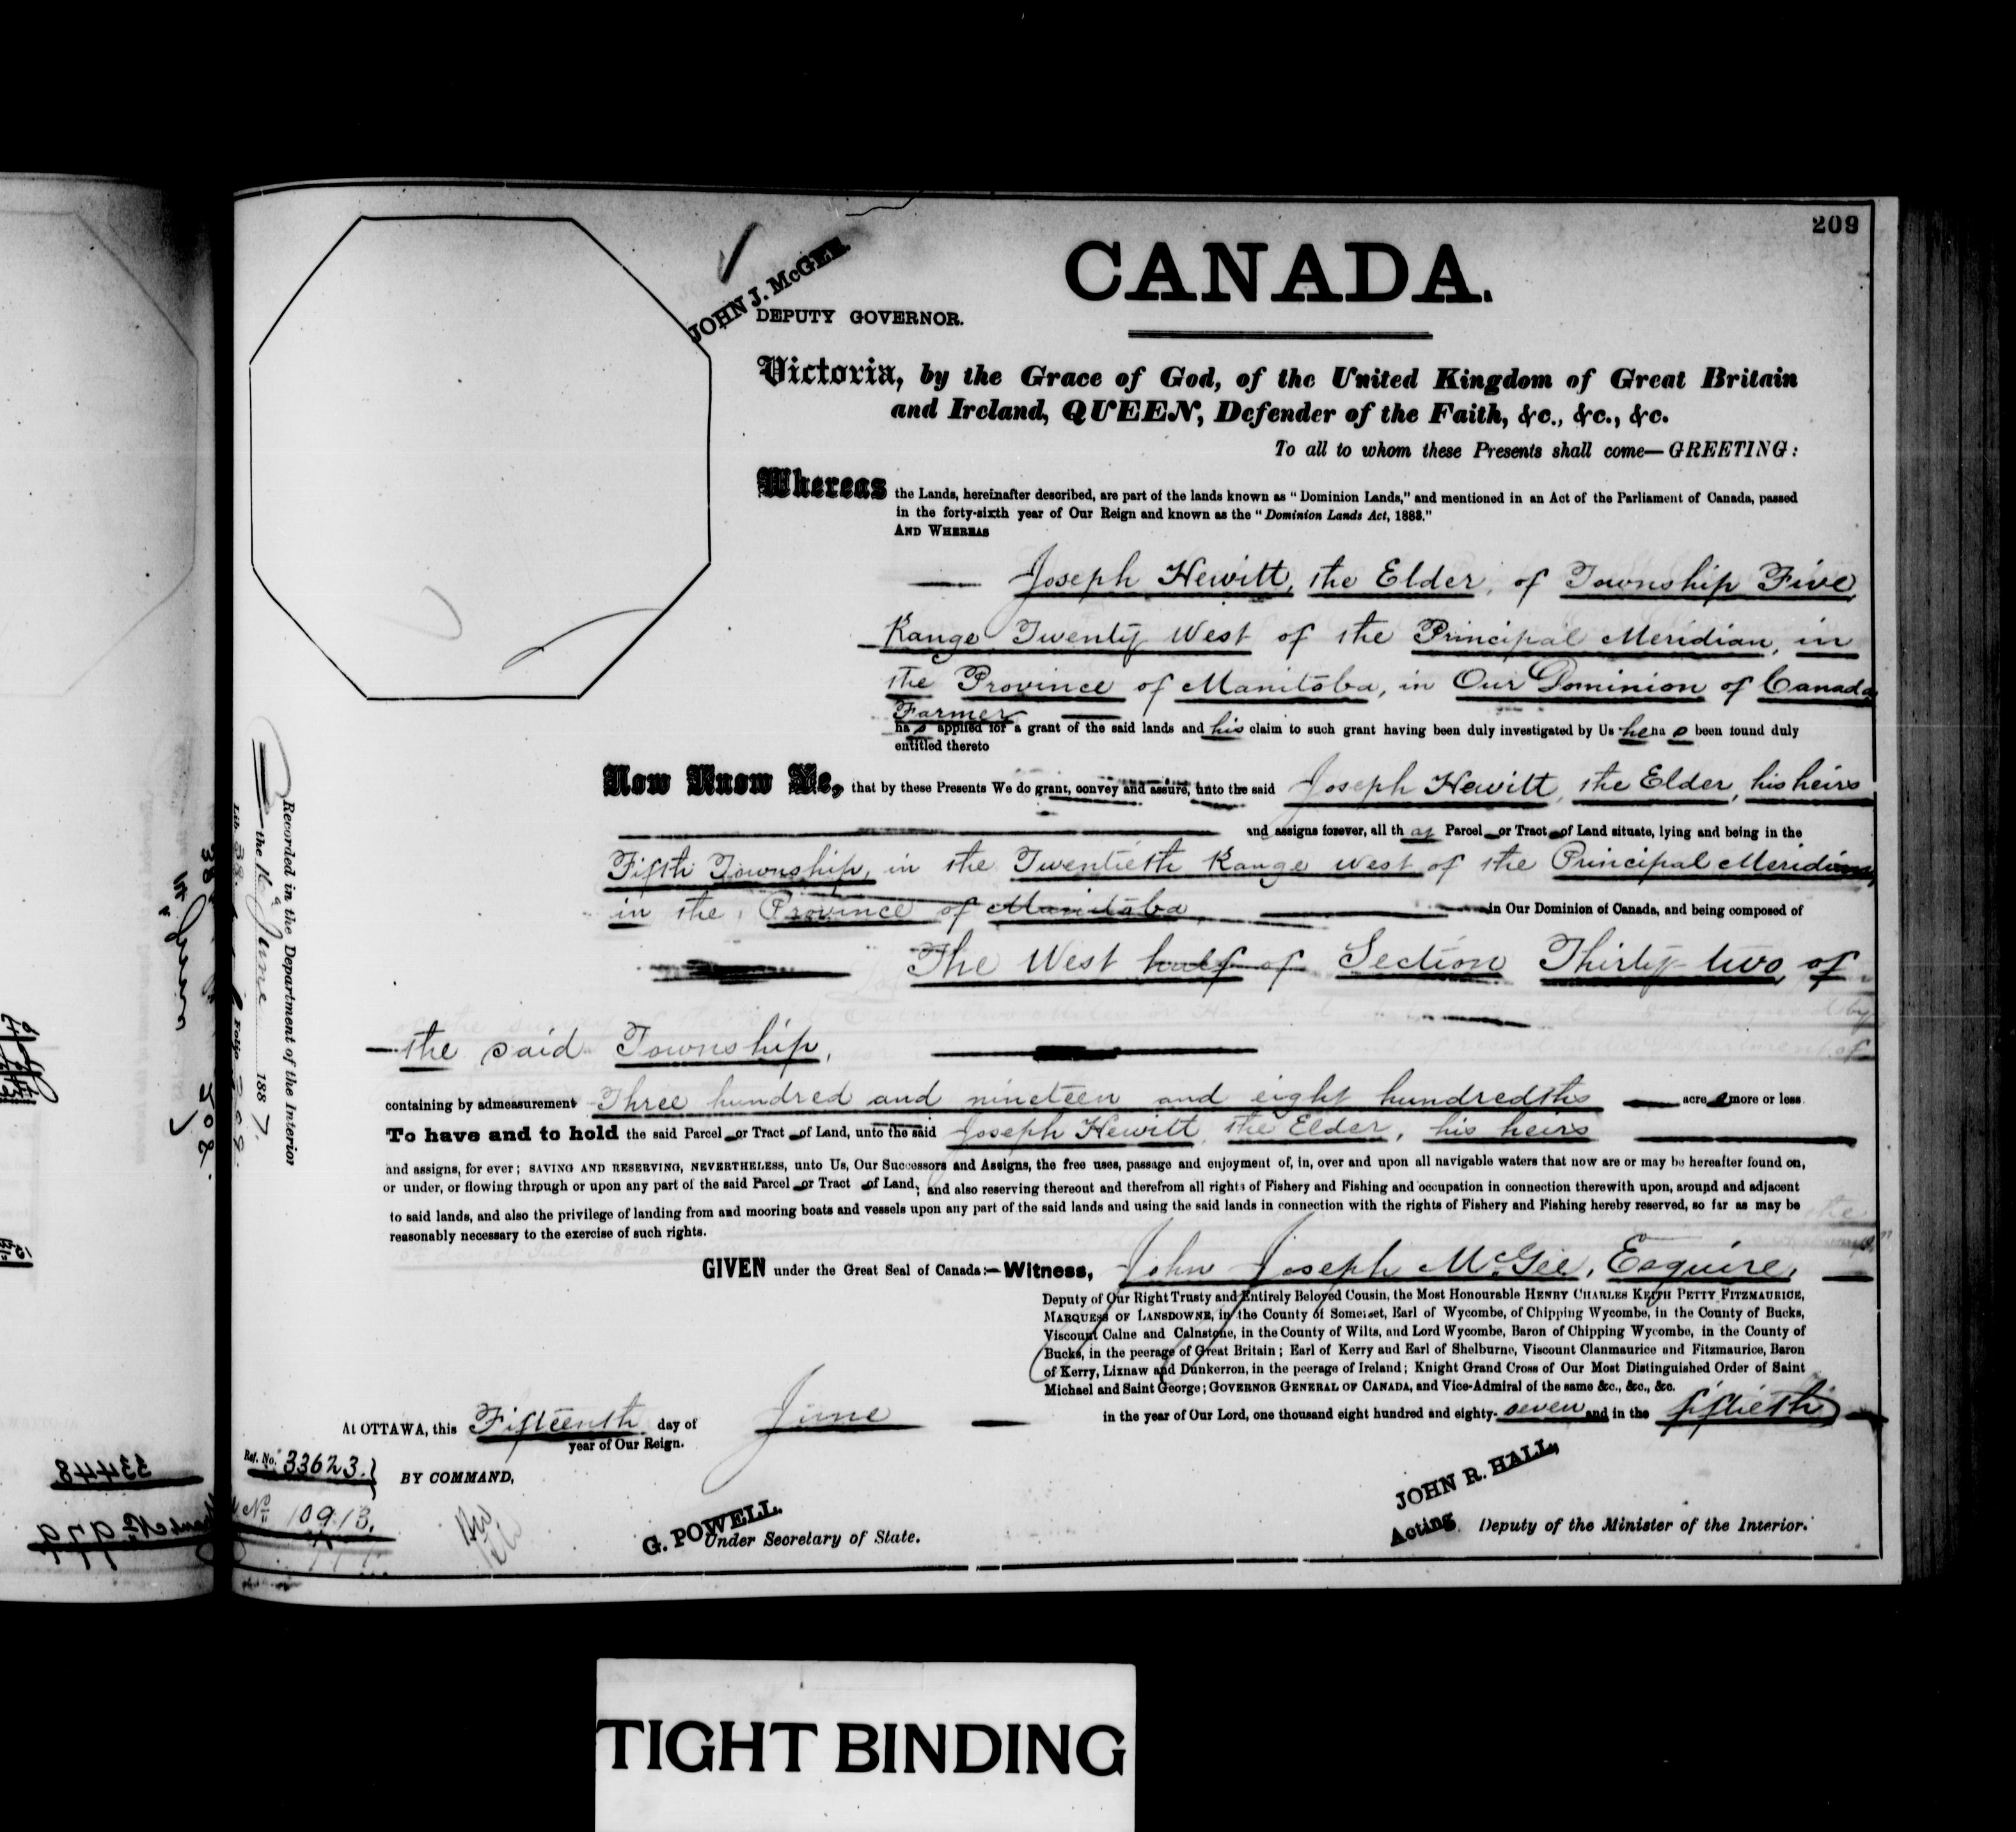 209
CANADA.
JOHN J. McGEE.
DEPUTY GOVERNOR.
Victoria, by the Grace of God, of the United Kingdom of Great Britain
and Ireland, QUEEN, Defender of the Faith, &c., &c., &c.
To all to whom these Presents shall come—GREETING:
Whereas the Lands, hereinafter described, are part of the lands known as "Dominion Lands," and mentioned in an Act of the Parliament of Canada, passed
in the forty-sixth year of Our Reign and known as the "Dominion Lands Act, 1883."
AND WHEREAS
Joseph Hewitt, the Elder, of Township Five
Range Twenty West of the Principal Meridian, in
the Province of Manitoba, in Our Dominion of Canada
Farmer
has applied for a grant of the said lands and his claim to such grant having been duly investigated by Us he has been found duly
entitled thereto
Now Know Ye, that by these Presents We do grant, convey and assure, unto the said Joseph Hewitt, the Elder, his heirs
and assigns forever, all that Parcel or Tract of Land situate, lying and being in the
Fifth Township, in the Twentieth Range West of the Principal Meridian,
in the Province of Manitoba, in Our Dominion of Canada, and being composed of
The West half of Section Thirty two, of
the said Township,
containing by admeasurement Three hundred and nineteen and eight hundredths acres more or less.
To have and to hold the said Parcel or Tract of Land, unto the said Joseph Hewitt, the Elder, his heirs
and assigns, for ever; SAVING AND RESERVING, NEVERTHELESS, unto Us, Our Successors and Assigns, the free uses, passage and enjoyment of, in, over and upon all navigable waters that now are or may be hereafter found on,
or under, or flowing through or upon any part of the said Parcel or Tract of Land; and also reserving thereout and therefrom all rights of Fishery and Fishing and occupation in connection therewith upon, around and adjacent
to said lands, and also the privilege of landing from and mooring boats and vessels upon any part of the said lands and using the said lands in connection with the rights of Fishery and Fishing hereby reserved, so far as may be
reasonably necessary to the exercise of such rights.
GIVEN under the Great Seal of Canada:—Witness, John Joseph McGee, Esquire,
Deputy of Our Right Trusty and Entirely Beloved Cousin, the Most Honourable HENRY CHARLES KEITH PETTY FITZMAURICE,
MARQUESS OF LANSDOWNE, in the County of Somerset, Earl of Wycombe, of Chipping Wycombe, in the County of Bucks,
Viscount Calne and Calnstone, in the County of Wilts, and Lord Wycombe, Baron of Chipping Wycombe, in the County of
Bucks, in the peerage of Great Britain; Earl of Kerry and Earl of Shelburne, Viscount Clanmaurice and Fitzmaurice, Baron
of Kerry, Lixnaw and Dunkerron, in the peerage of Ireland; Knight Grand Cross of Our Most Distinguished Order of Saint
Michael and Saint George; GOVERNOR GENERAL OF CANADA, and Vice-Admiral of the same &c., &c., &c.
At OTTAWA, this Fifteenth day of June in the year of Our Lord, one thousand eight hundred and eighty-seven and in the fiftieth
year of Our Reign.
Ref. No. 33623.
BY COMMAND,
No 10913.
G. POWELL.
Under Secretary of State.
JOHN R. HALL,
Acting Deputy of the Minister of the Interior.
Recorded in the Department of the Interior
the 16 June 1887.
Lib. 38. Folio
33448
TIGHT BINDING